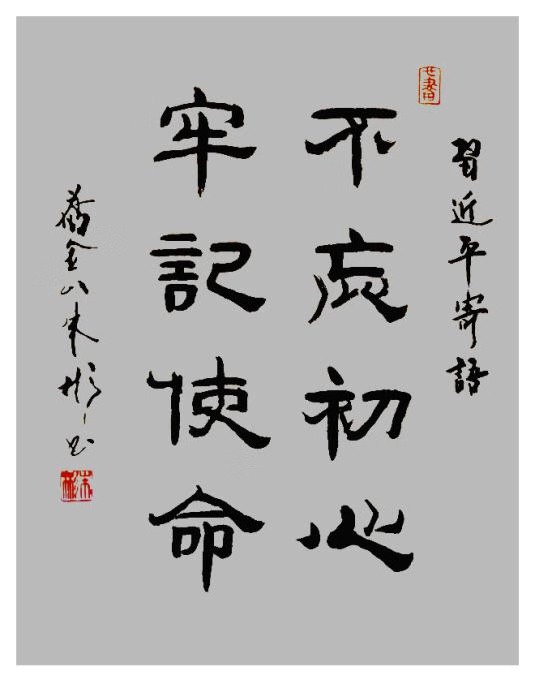 習近平寄語
不忘初心
牢記使命